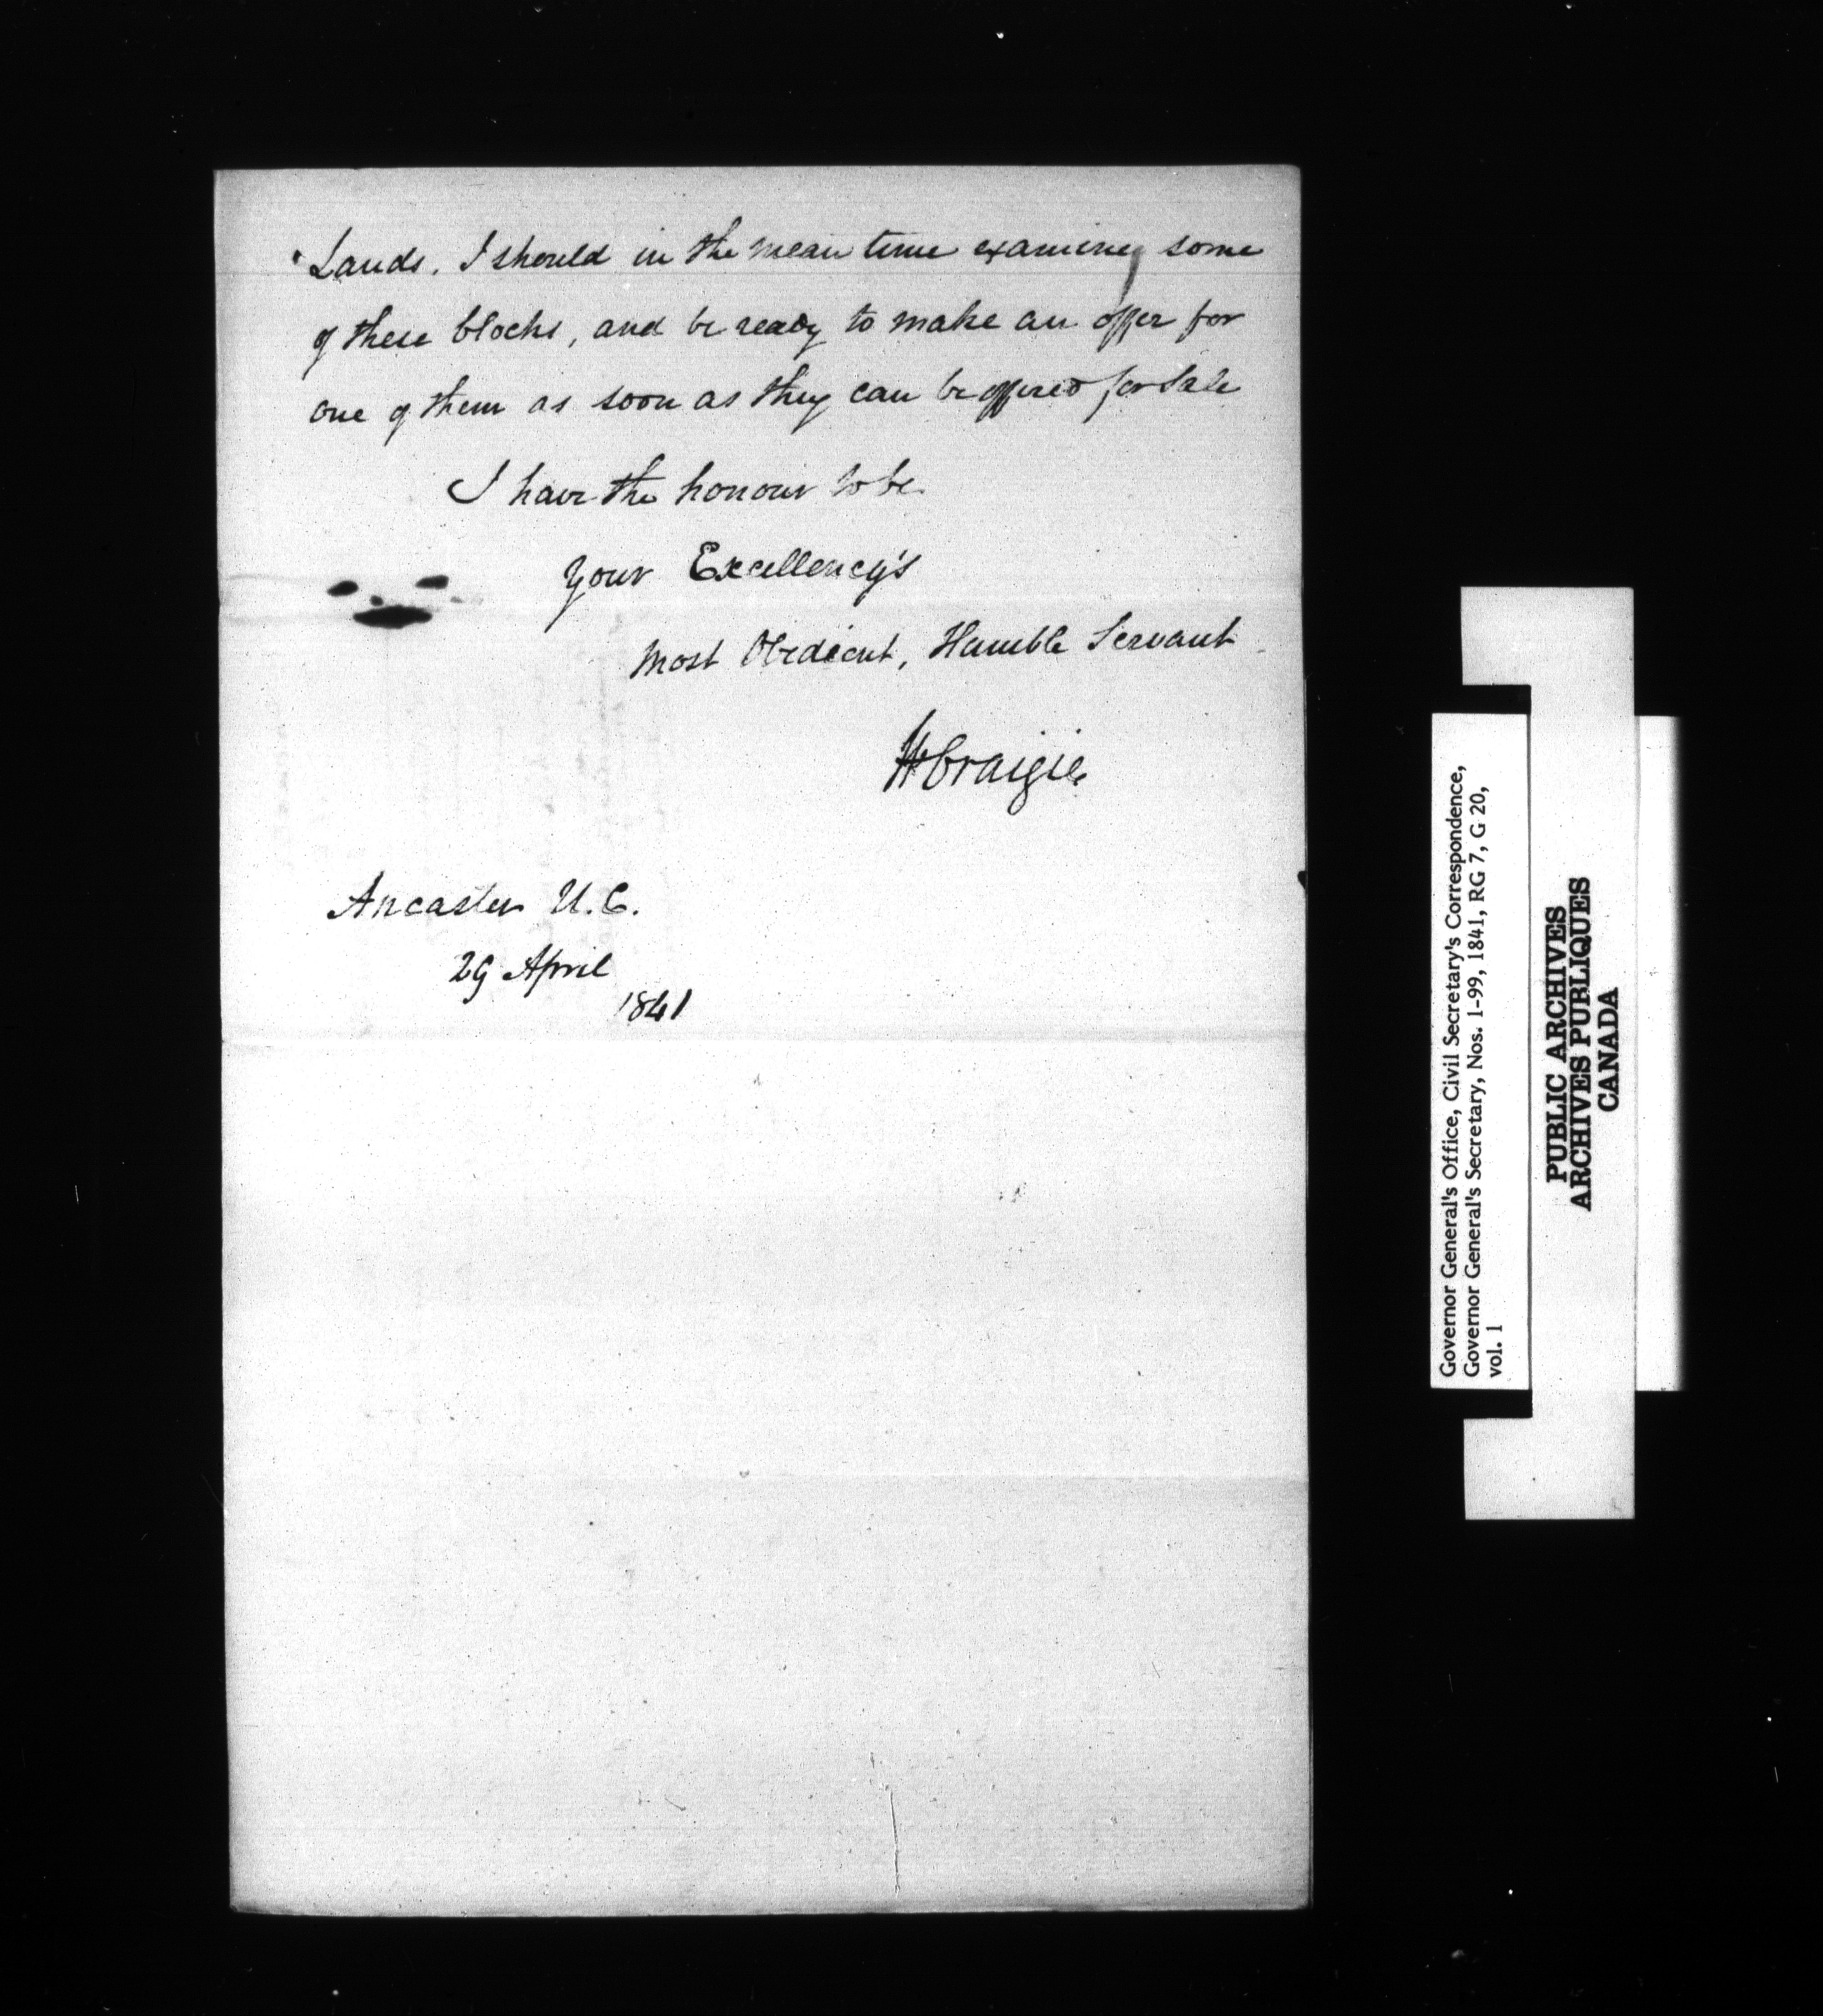 Lands. I should in the mean time examine some
of these blocks, and be ready to make an offer for
one of them as soon as they can be offered for Sale
I have the honour to be
Your Excellency's
Most Obedient, Humble Servant
W Craigie
Ancaster U.C.
29 April
1841
Governor General's Office, Civil Secretary's Correspondence,
Governor General's Secretary, Nos. 1-99, 1841, RG 7, G 20,
vol. 1
PUBLIC ARCHIVES
ARCHIVES PUBLIQUES
CANADA